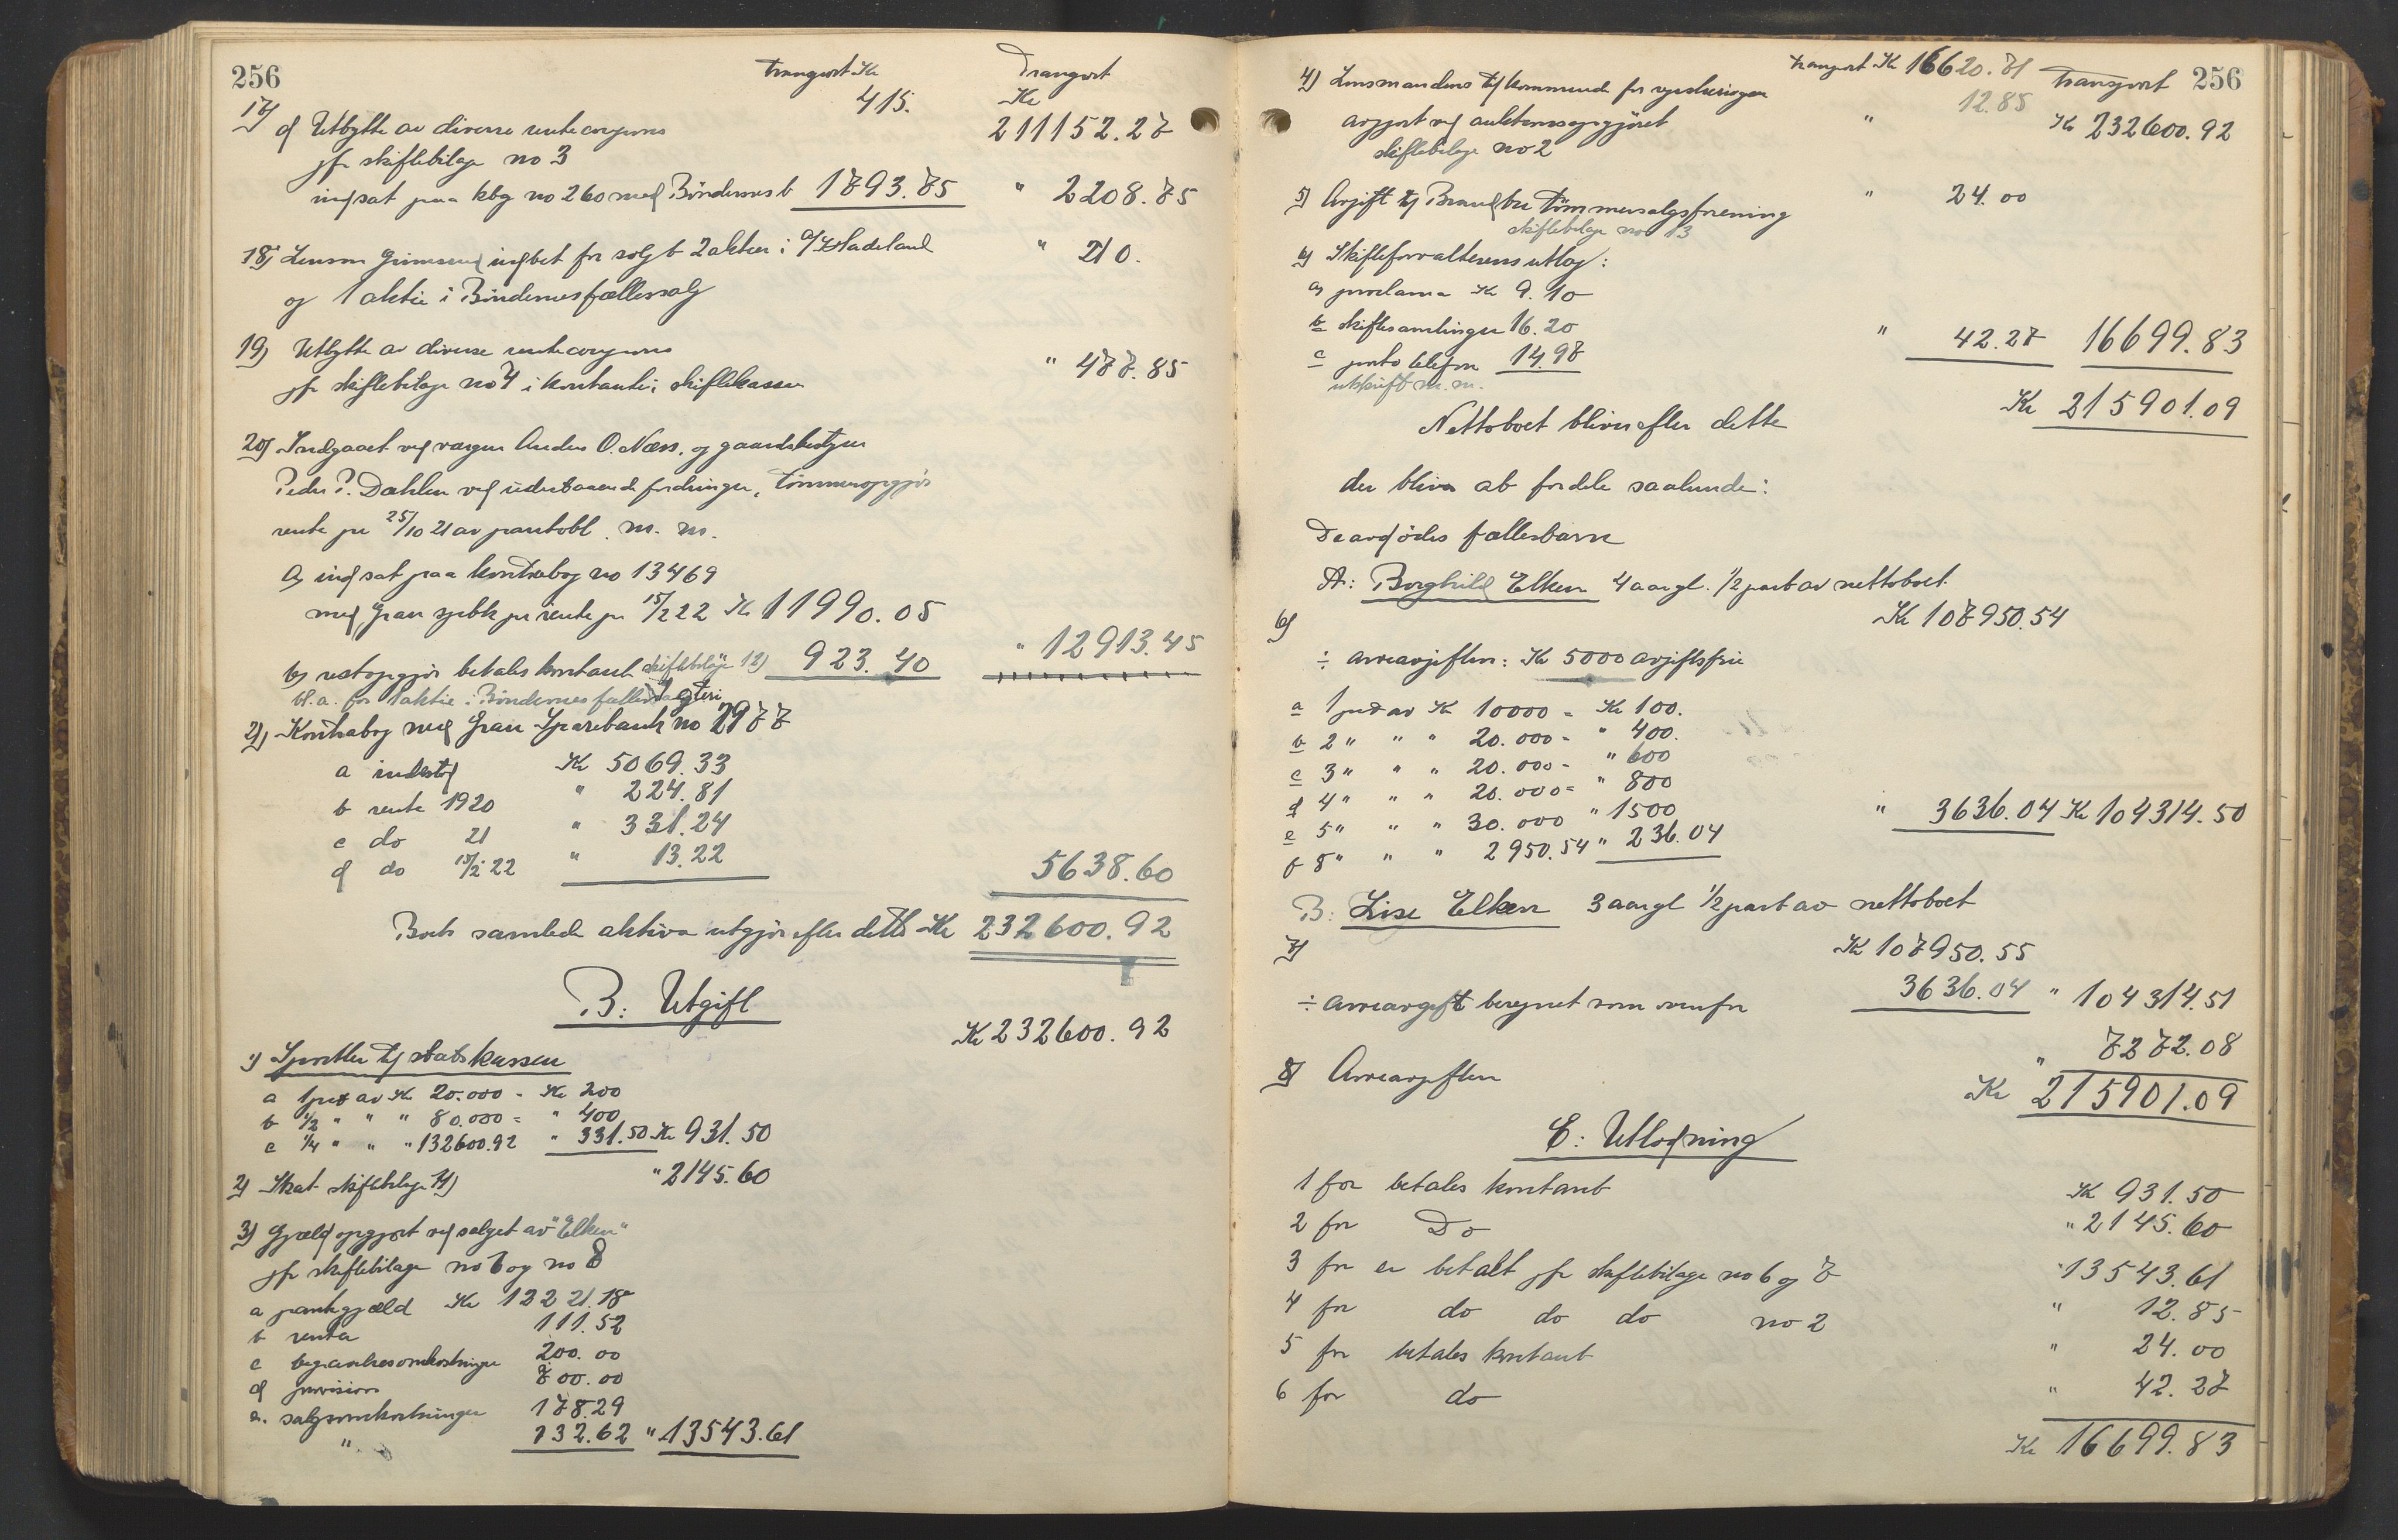 256
transport Kr
Transport
17)
415.
Kr
d Utbytte av diverse rentecoupons
211152.27
jfr skiftebilage no 3
indsat paa kbg no 260 med Böndernes b 1793.75 " 2208.75
18) Lensm Grimsrud indbet for solgt 2 aktier i A/S Hadeland " 210.
og 1 aktie i Böndernes fællessalg
19) Utbytte av diverse rentecoupons
jfr skiftebilage no 4 i kontanter i skiftekassen " 477.85
20) Indgaaet ved værgen Anders O. Næss. og gaardsbestyrer
Peder P. Dahlen ved utestaaende fordringer, tömmeropgjör
rente pr 25/10 21 av pantobl. m. m.
a) indsat paa kontrabog no 13469
med Gran spbk pr rente pr 15/2 22 Kr 11990.05
b) restopgjör betales kontant skiftebilage 12) 923.40 " 12913.45
bl.a. for 1 aktie i Böndernes fælles slagteri
21) Kontrabog med Gran Sparebank no 2977
a indestod Kr 5069.33
b rente 1920 " 224.81
c do 21 " 331.24
d do 15/2 22 " 13.22
5638.60
Boets samlede aktiva utgjör efter dette Kr 232600.92
B: Utgift
Kr 232600.92
1) Sportler til statskassen
a 1 pct av Kr 20.000 - Kr 200
b 1/2 " " " 80.000 = " 400
c 1/4 " " " 132600.92 " 331.50 Kr 931.50
2) Skat skiftebilage 11) " 2145.60
3) Gjæld opgjort ved salget av "Elken"
jfr skiftebilage no 6 og no 8
a pantegjæld Kr 12221.18
b renter 111.52
c begravelsesomkostninger 200.00
d provision 700.00
e. salgsomkostninger 178.29
" 132.62 " 13543.61
transport Kr 16620.71
Transport 256
4) Lensmandens tilkommende for vurderingen
12.85
avgjort ved auktionsopgjöret " Kr 232600.92
skiftebilage no 2
5) Avgift til Brandbu tömmersalgsforening " 24.00
skiftebilage no 13
6) Skifteforvalterens utlæg:
a) proclama Kr 9.10
b skiftesamlinger 16.20
c porto telefon 14.97 " 42.27 16699.83
utskrift m.m.
Kr 215901.09
Nettoboet bliver efter dette
der bliver at fordele saalunde:
De avdödes fællesbarn
A: Borghild Elken 4 aar gl. 1/2 part av nettoboet
6) Kr 107950.54
÷ arveavgiften: Kr 5000 avgiftsfrie
a 1 pct av Kr 10000 = Kr 100.
b 2 " " " 20.000 - " 400.
c 3 " " " 20.000 - " 600
d 4 " " " 20.000 = " 800
e 5 " " " 30.000 " 1500
f 8 " " " 2950.54 " 236.04
" 3636.04 Kr 104314.50
B: Lise Elken 3 aar gl 1/2 part av nettoboet
7) Kr 107950.55
÷ arveavgift beregnet som ovenfor 3636.04 " 104314.51
8) Arveavgiften " 7272.08
Kr 215901.09
C: Utlodning
1 for betales kontant Kr 931.50
2 for Do " 2145.60
3 for er betalt jfr skiftebilage no 6 og 7 " 13543.61
4 for do do do no 2 " 12.85
5 for betales kontant " 24.00
6 for do " 42.27
Kr 16699.83